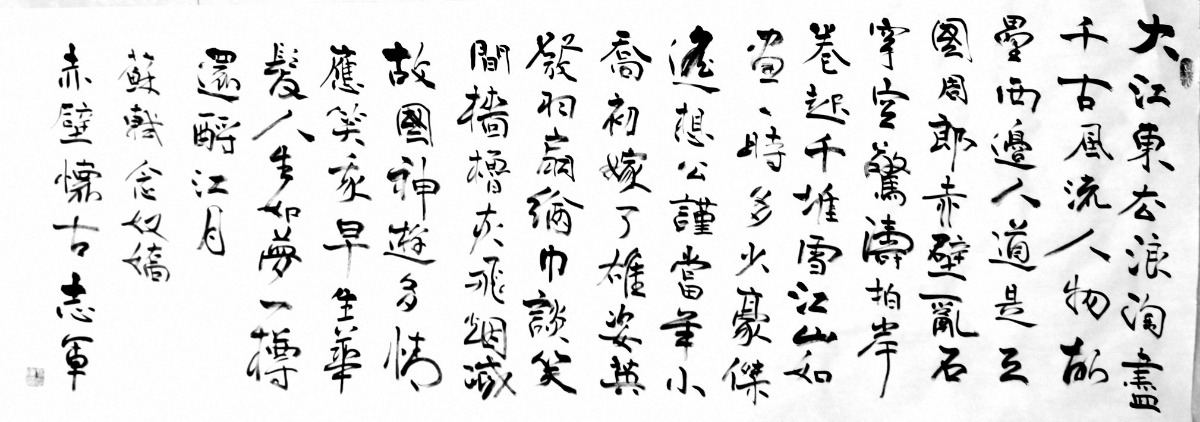 大江東去浪淘盡
千古風流人物故
壘西邊人道是三
國周郎赤壁亂石
穿空驚濤拍岸
卷起千堆雪江山如
畫一時多少豪傑
遙想公謹當年小
喬初嫁了雄姿英
發羽扇綸巾談笑
間檣櫓灰飛烟滅
故國神遊多情
應笑我早生華
髮人生如夢一樽
還酹江月
蘇軾念奴嬌
赤壁懷古志軍